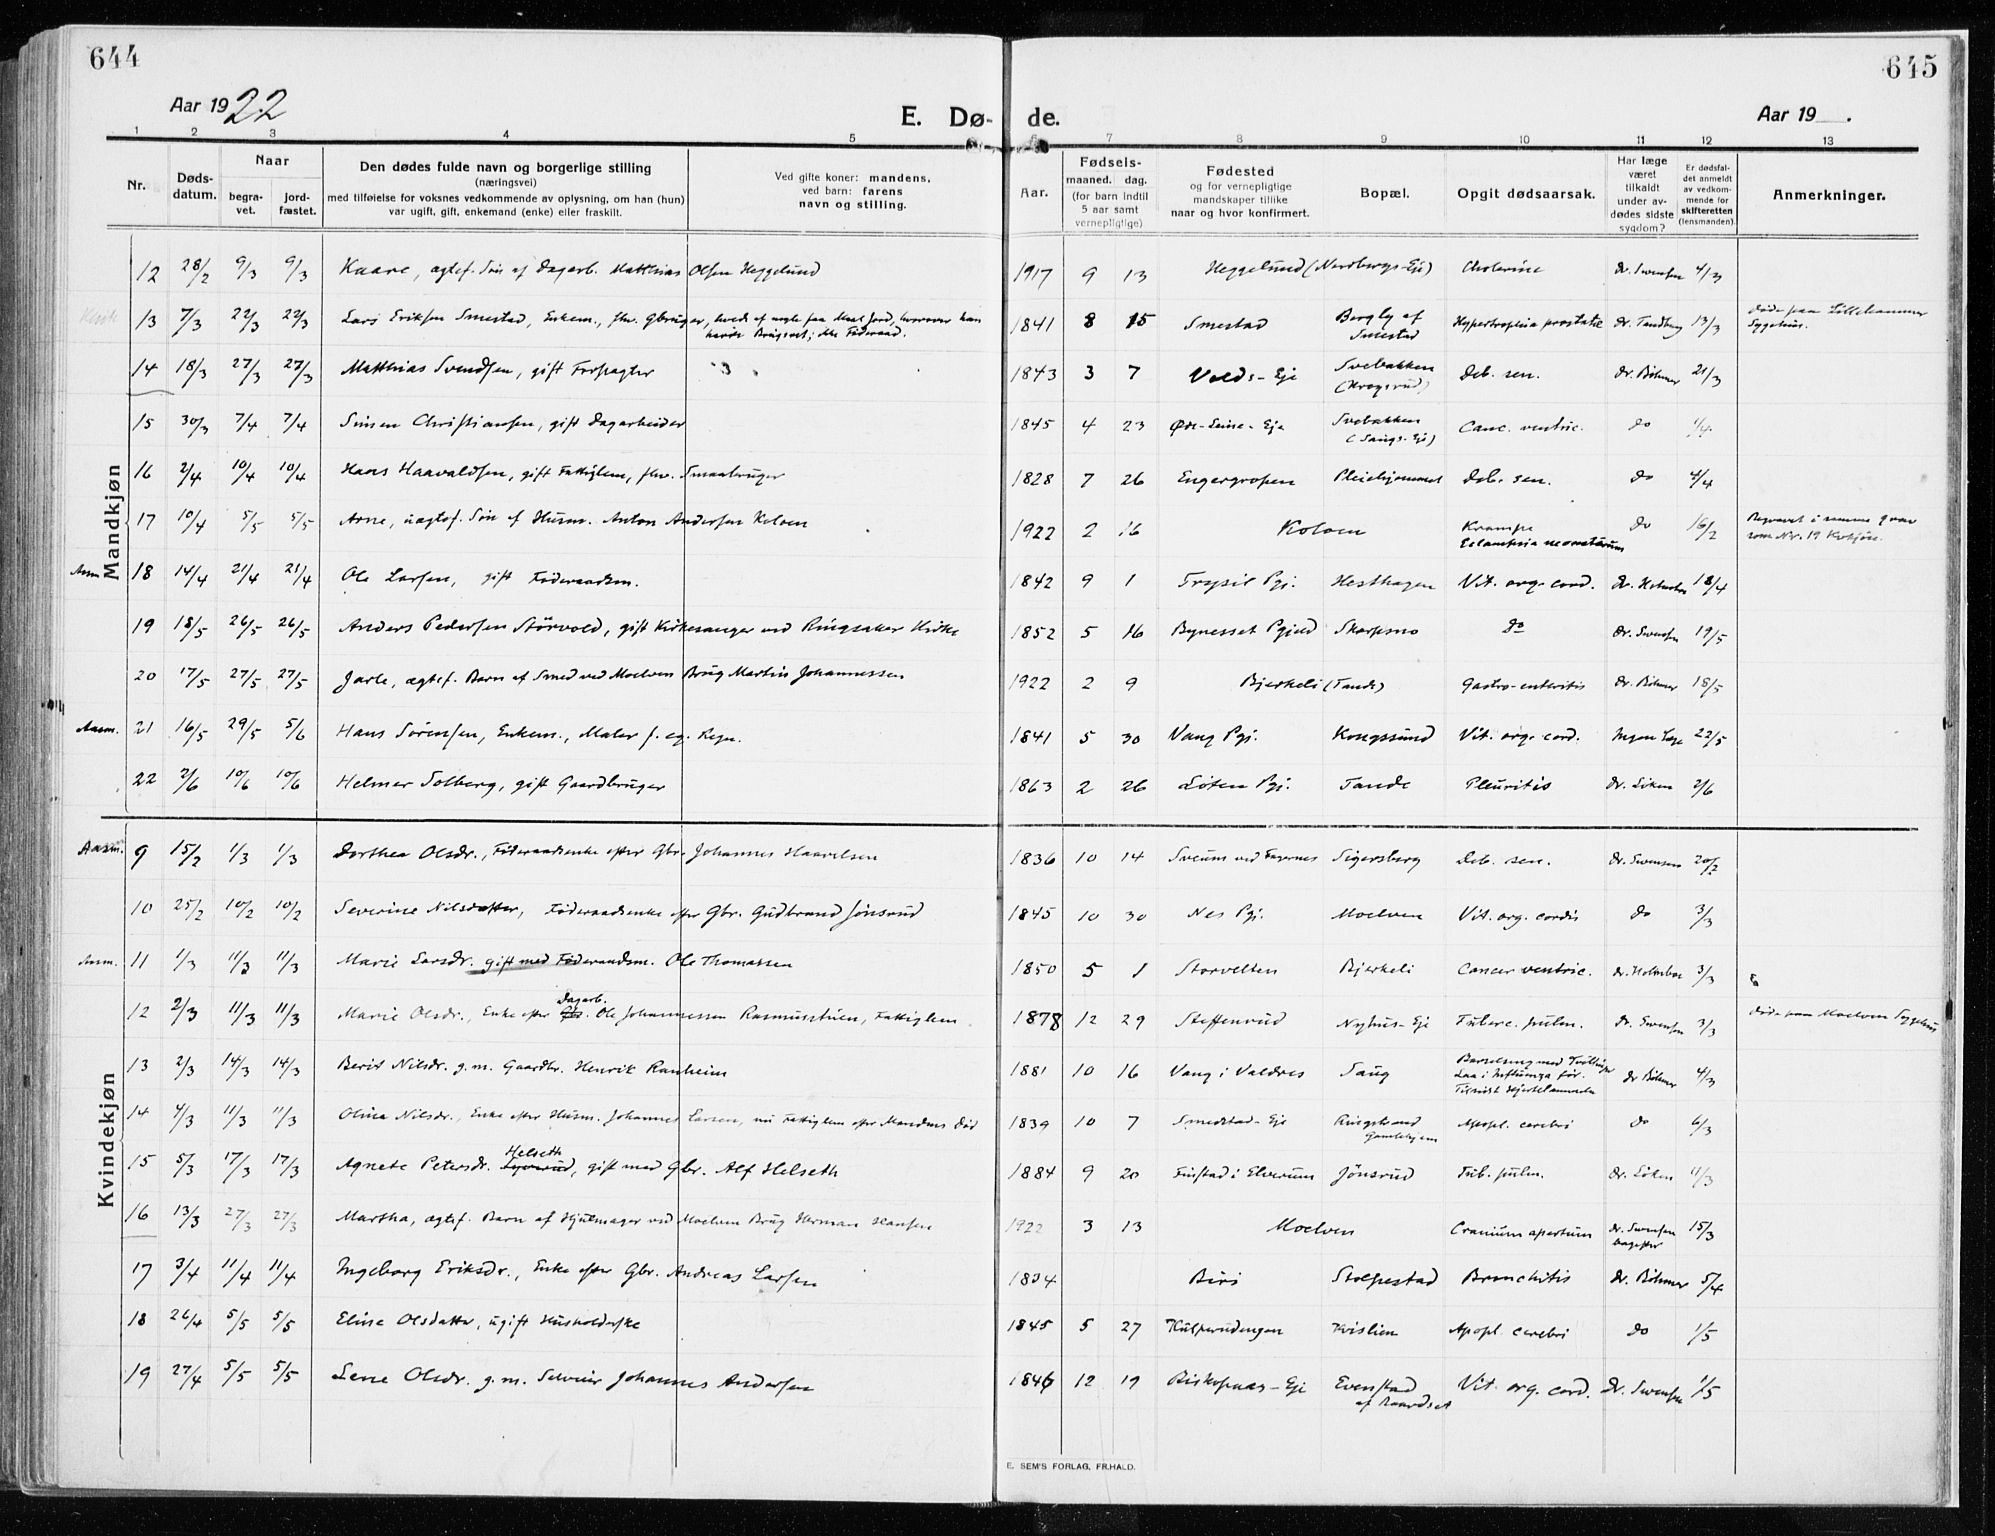 644
Aar 1922
E. Dø-
1 2 3 4 5
Nr.
Døds-
datum.
Naar
begra-
vet.
jord-
fæstet.
Den dødes fulde navn og borgerlige stilling
(næringsvei)
med tilføielse for voksnes vedkommende av oplysning, om han (hun)
var ugift, gift, enkemand (enke) eller fraskilt.
Ved gifte koner: mandens,
ved barn: farens
navn og stilling.
Mandkjøn
12 28/2 9/3 9/3 Kaare, ægtef. Søn af Dagarb. Matthias Olsen Heggelund
13 7/3 22/3 22/3 Lars Eriksen Smestad, Enkem., fhv. Gbruger,
14 18/3 27/3 27/3 Matthias Svendsen, gift Forpagter
15 30/3 7/4 7/4 Simen Christiansen, gift Dagarbeider
16 2/4 10/4 10/4 Hans Haavaldsen, gift Fattiglem, fhv. Smaabruger
17 10/4 5/5 5/5 Arne, uægtef. Søn af Husm. Anton Andersen Koloen
Aasm. 18 14/4 21/4 21/4 Ole Larsen, gift Føderaadsm.
19 18/5 26/5 26/5 Anders Pedersen Størvold, gift Kirkesanger ved Ringsaker Kirke
20 17/5 27/5 27/5 Jarle, ægtef. Barn af Smed ved Moelven Brug Martin Johannessen
Aasm. 21 16/5 29/5 5/6 Hans Sørensen, Enkem., Maler f. eg. Regn.
22 2/6 10/6 10/6 Helmer Solberg, gift Gaardbruger
Kvindekjøn
Aasm. 9 15/2 1/3 1/3 Dorthea Olsdr., Føderaadsenke efter Gbr. Johannes Haavelsen
10 25/2 10/2 10/2 Severine Nilsdatter, Føderaadsenke efter Gbr. Gudbrand Jønsrud
Aasm. 11 1/3 11/3 11/3 Marie Larsdr. gift med Føderaadsm. Ole Thomassen
Dagarb.
12 2/3 11/3 11/3 Marie Olsdr., Enke efter Gbr. Ole Johannessen Rasmusstuen, Fattiglem
13 2/3 14/3 14/3 Berit Nilsdr. g.m. Gaardbr. Henrik Ranheim
14 4/3 11/3 11/3 Olina Nilsdr., Enke efter Husm. Johannes Larsen, nu Fattiglem efter Mandens Død
Helseth
15 5/3 17/3 17/3 Agnete Petersdr. gift med Gbr. Alf Helseth
16 13/3 27/3 27/3 Martha, ægtef. Barn af Hjulmager ved Moelven Brug Herman Hansen
17 3/4 11/4 11/4 Ingeborg Eriksdr., Enke efter Gbr. Andreas Larsen
18 26/4 5/5 5/5 Eline Olsdatter, ugift Husholderske
19 27/4 5/5 5/5 Lene Olsdr. g.m. Selveier Johannes Andersen
645
de.
Aar 19 .
6 7 8 9 10 11 12 13
Aar.
Fødsels-
maaned. dag.
(for barn indtil
5 aar samt
vernepligtige)
Fødested
og for vernepligtige
mandskaper tillike
naar og hvor konfirmert.
Bopæl.
Opgit dødsaarsak.
Har læge
været
tilkaldt
under av-
dødes sidste
sygdom?
Er dødsfal-
det anmeldt
av vedkom-
mende for
skifteretten
(lensmanden).
Anmerkninger.
1917 9 13 Heggelund (Nordbergs-Eje) Cholerine Dr. Swensen 4/3
1841 8 15 Smestad Bergly af Smestad Hypertrophia prostatæ Dr. Tandberg 13/3 Døde paa Lillehammer Sygehus.
1843 3 7 Volds-Eje Svebakken (Krogsrud) Deb. sen. Dr. Böhmer 21/3
1845 4 23 Øde-Seine-Eje Svebakken (Saugs-Eje) Canc. ventric. do 1/4
1828 7 26 Engergropen Pleiehjemmet Deb. sen. do 4/4
1922 2 16 Koloen Krampe Eclampsia neonatorum do 16/2 Begravet i samme grav som Nr. 19 Kvkjøn.
1842 9 1 Trysil Pgj. Hesthagen Vit. org. cord. Dr. Holmboe 18/4
1852 5 16 Bynesset Pgjeld Skarpsno Do Dr. Swensen 19/5
1922 2 9 Bjerkeli (Tande) Gastro-enteritis Dr. Böhmer 18/5
1841 5 30 Vang Pgj. Kongssund Vit. org. cord. Ingen Læge 22/5
1863 2 26 Løten Pgj. Tande Pleuritis Dr. Löken 2/6
1836 10 14 Sveum ved Fagernes Sigersberg Deb. sen. Dr. Swensen 20/2
1845 10 30 Nes Pgj. Moelven Vit. org. cordis do 3/3
1850 5 1 Storvelten Bjerkeli Cancer ventric. Dr. Holmboe 3/3
1878 12 29 Steffensrud Nyhus-Eje Tuberc. pulm. Dr. Swensen 3/3 Døde paa Moelven Sygehus
1881 10 16 Vang i Valdres Saug Barselseng med Tvillinger Laa i Influenza før. Tilsidst Hjertelammelse Dr Böhmer 4/3
1839 10 7 Smedstad-Eje Ringstrand Gamlehjem Apopl. cerebri do 6/3
1884 9 20 Finstad i Elverum Jönsrud Tub. pulm. Dr. Löken 11/3
1922 3 13 Moelven Cranium apertum Dr. Swensen bagefter 15/3
1834 Biri Stolpestad Bronchitis Dr. Böhmer 5/4
1845 5 27 Kulperudengen Kvislien Apopl. cerebri do 1/5
1846 12 19 Biskopaas-Eje Evenstad af Vit. org. cord. Dr. Swensen 1/5
E. SEM'S FORLAG, FR.HALD.